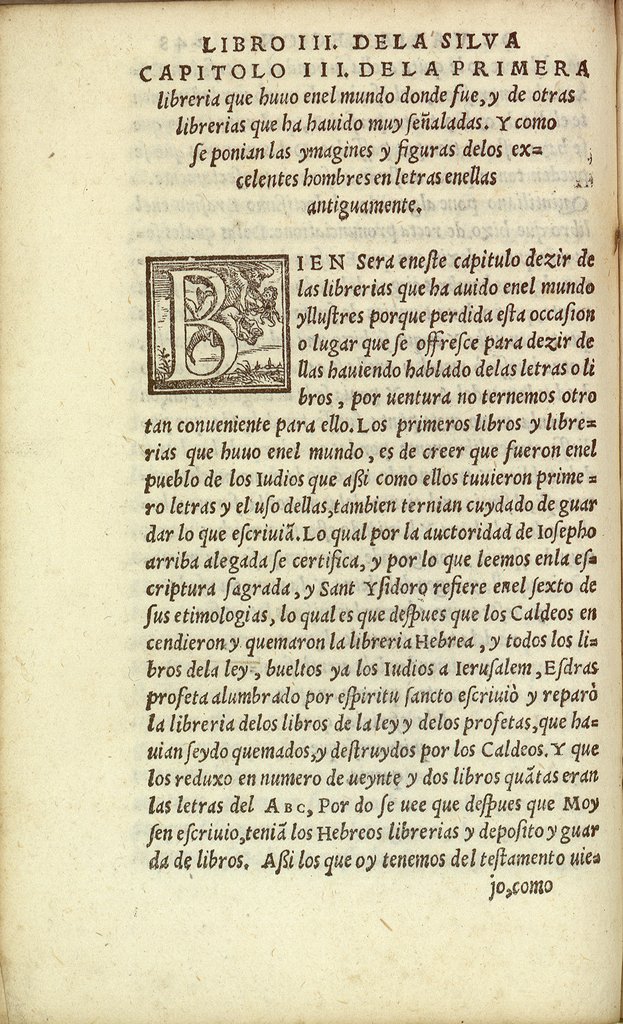 LIBRO III. DELA SILVA
CAPITOLO III. DELA PRIMERA
libreria que huuo enel mundo donde fue, y de otras
librerias que ha hauido muy ſeñaladas. Y como
ſe ponian las ymagines y figuras delos ex=
celentes hombres en letras enellas
antiguamente.
BIEN Sera eneſte capitulo dezir de
las librerias que ha auido enel mundo
yllustres porque perdida eſta occaſion
o lugar que ſe offreſce para dezir de
llas hauiendo hablado delas letras o li
bros, por uentura no ternemos otro
tan conueniente para ello. Los primeros libros y libre=
rias que huuo enel mundo, es de creer que fueron enel
pueblo de los Iudios que aßi como ellos tuuieron prime=
ro letras y el uſo dellas, tambien ternian cuydado de guar
dar lo que eſcriuiã. Lo qual por la auctoridad de Ioſepho
arriba alegada ſe certifica, y por lo que leemos enla eſ=
criptura ſagrada, y Sant Yſidoro refiere enel ſexto de
ſus etimologias, lo qual es que deſpues que los Caldeos en
cendieron y quemaron la libreria Hebrea, y todos los li=
bros dela ley, bueltos ya los Iudios a Ieruſalem, Eſdras
profeta alumbrado por eſpiritu ſancto eſcriuiò y reparò
la libreria delos libros de la ley y delos profetas, que ha=
uian ſeydo quemados, y deſtruydos por los Caldeos. Y que
los reduxo en numero de ueynte y dos libros quãtas eran
las letras del ABC, Por do ſe uee que deſpues que Moy
ſen eſcriuio, teniã los Hebreos librerias y depoſito y guar
da de libros. Aßi los que oy tenemos del teſtamento uie=
jo, como